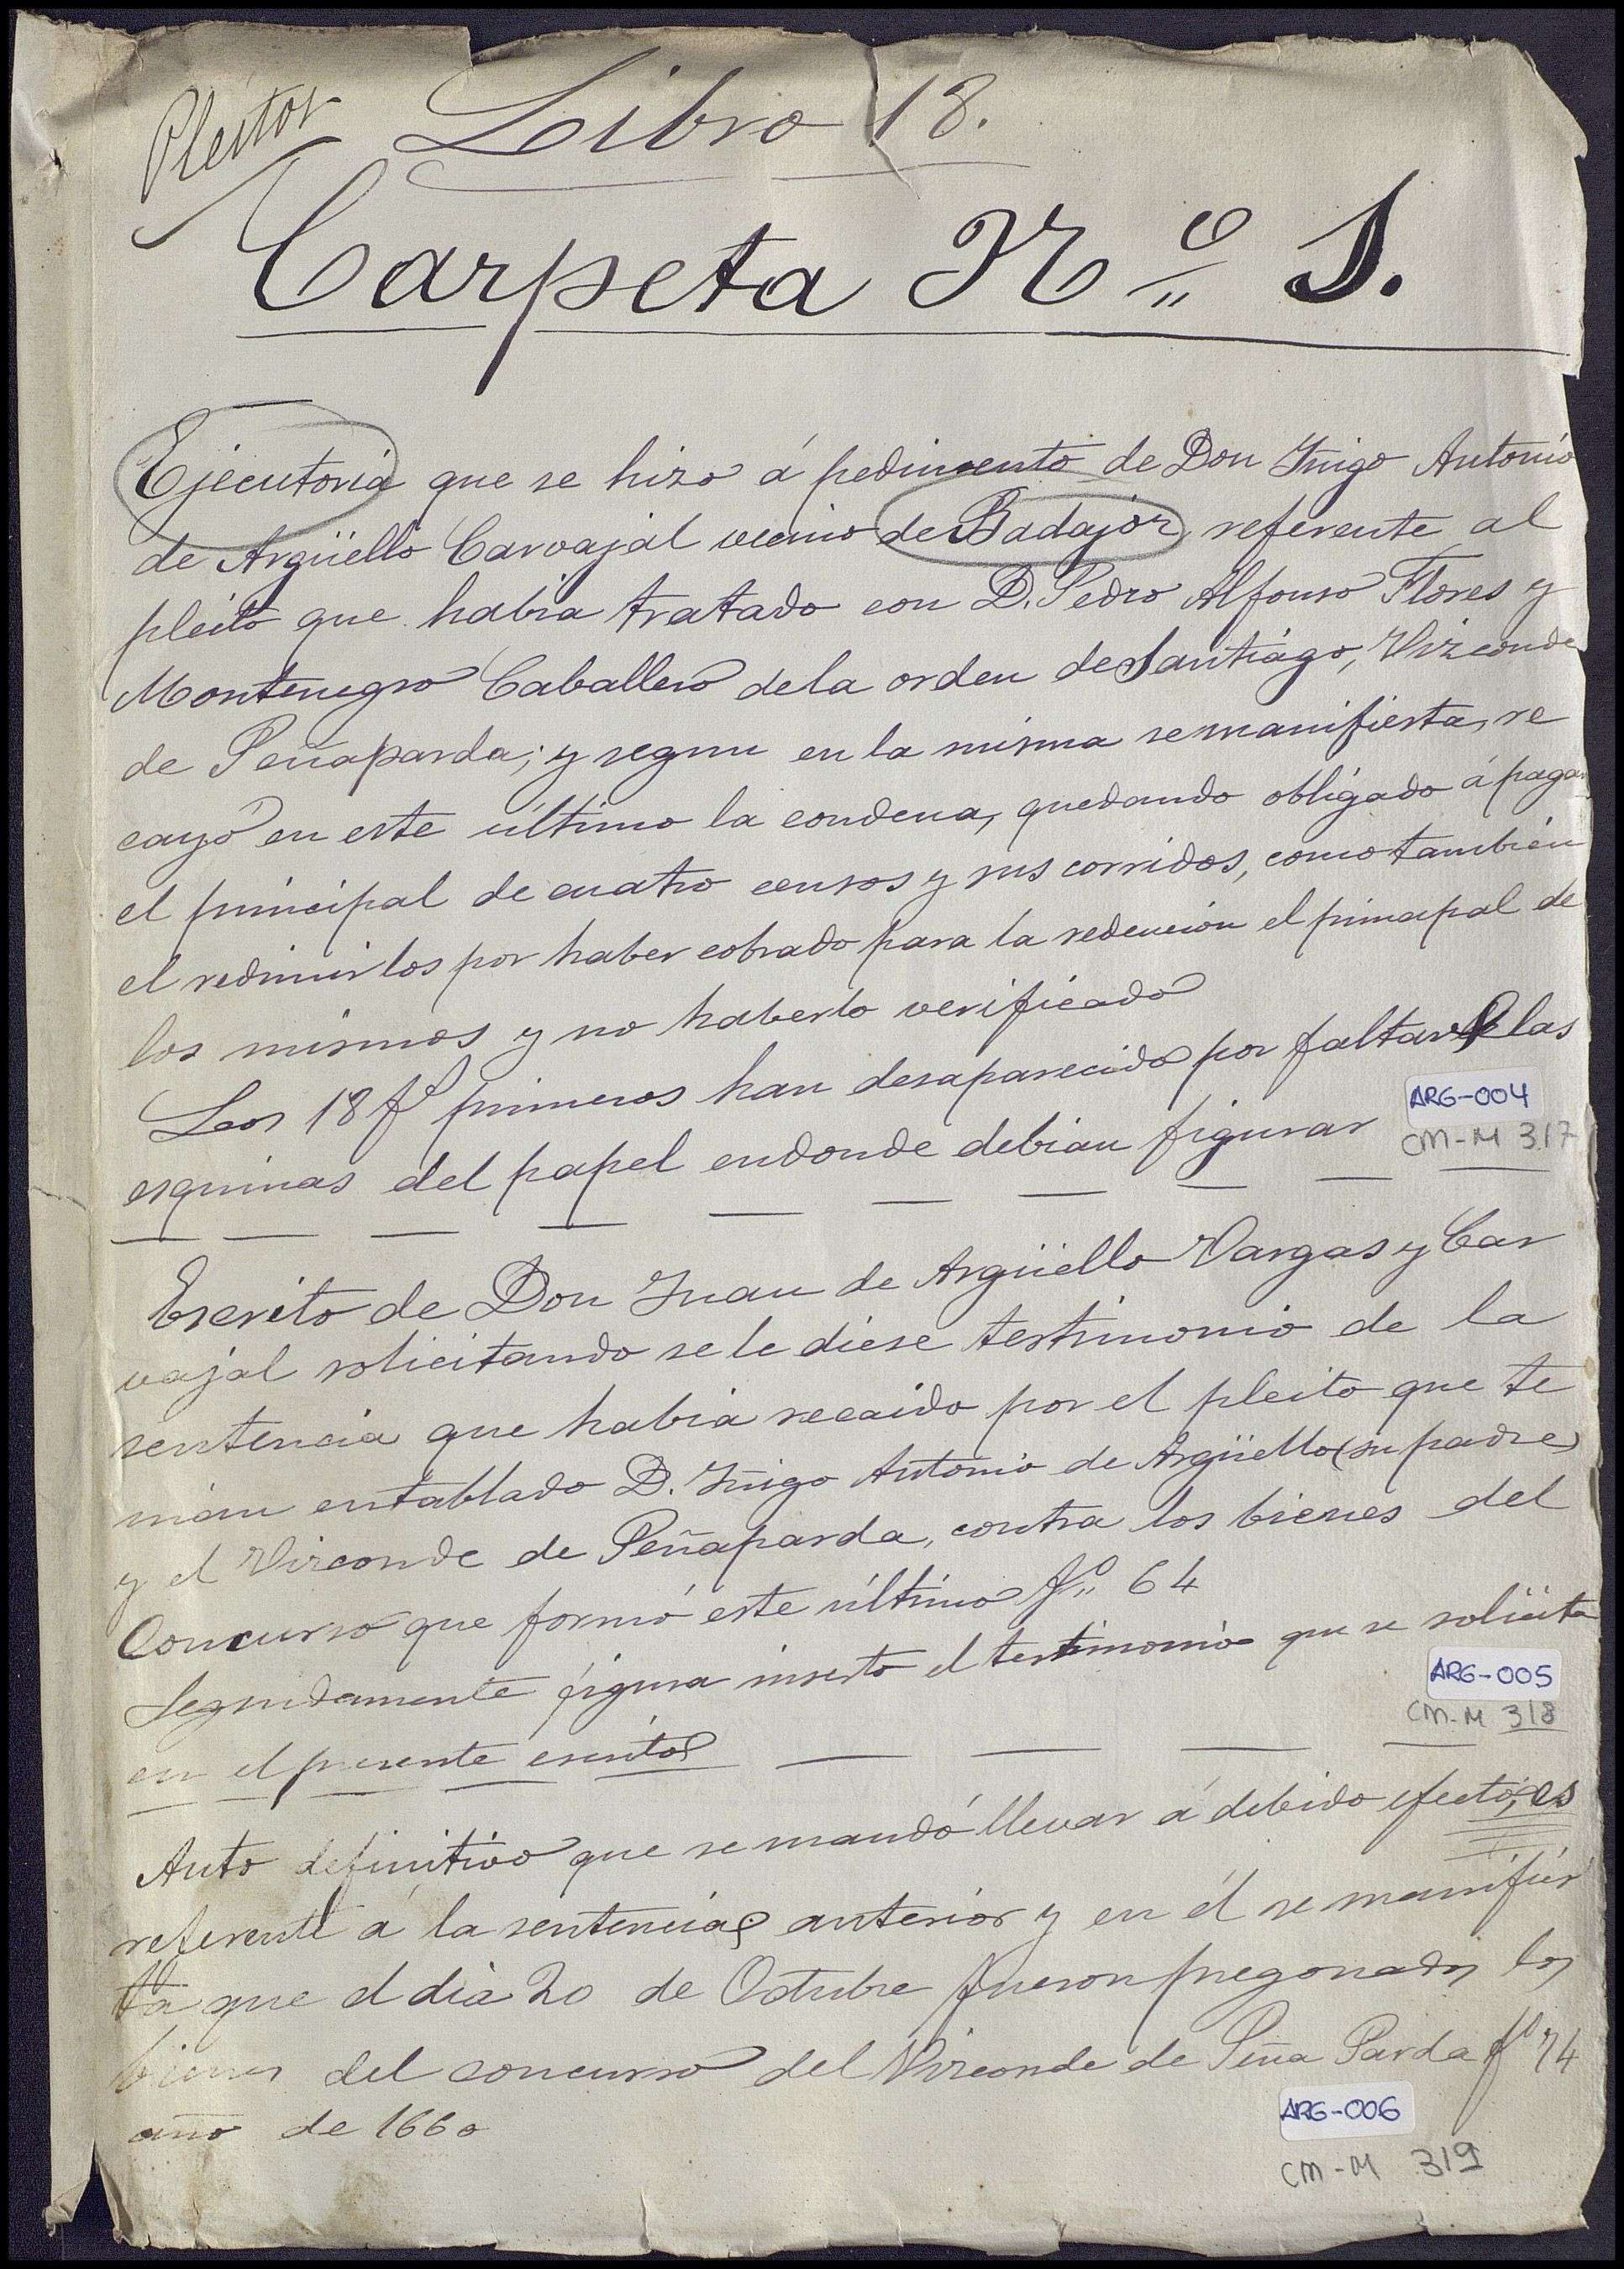 Pleitos
Libro 18.
Carpeta Nº 1.
Ejecutoria que se hizo á pedimento de Don Iñigo Antonio
de Argüello Carvajal vecino de Badajóz, referente al
pleito que habia tratado con D. Pedro Alfonso Flores y
Montenegro Caballero de la orden de Santiágo, Vizconde
de Peñaparda; y segun en la misma se manifiesta, re
cayó en este último la condena, quedando obligado á pagar
el principal de cuatro censos y sus corridos, como también
el redimirlos por haber cobrado para la redención el principal de
los mismos y no haberlo verificado
Los 18 fº primeros han desaparecido por faltarle las
esquinas del papel endonde debian figurar
ARG-004
CM-M 317
Escrito de Don Juan de Argüello Vargas y Car
vajal solicitando se le diese testimonio de la
sentencia que habia recaido por el pleito que te
nian entablado D. Iñigo Antonio de Argüello (su padre)
y el Vizconde de Peñaparda, contra los bienes del
Concurso que formó este último fº 64
Seguidamente figura inserto el testimonio que se solicita
en el presente escrito
ARG-005
CM-M 318
Auto definitivo que se mandó llevar á debido efecto, es
referente á la sentencia anterior y en él se manifies
ta que el dia 20 de Octubre fueron pregonados los
bienes del concurso del Vizconde de Peña Parda fº 74
año de 1660
ARG-006
CM-M 319